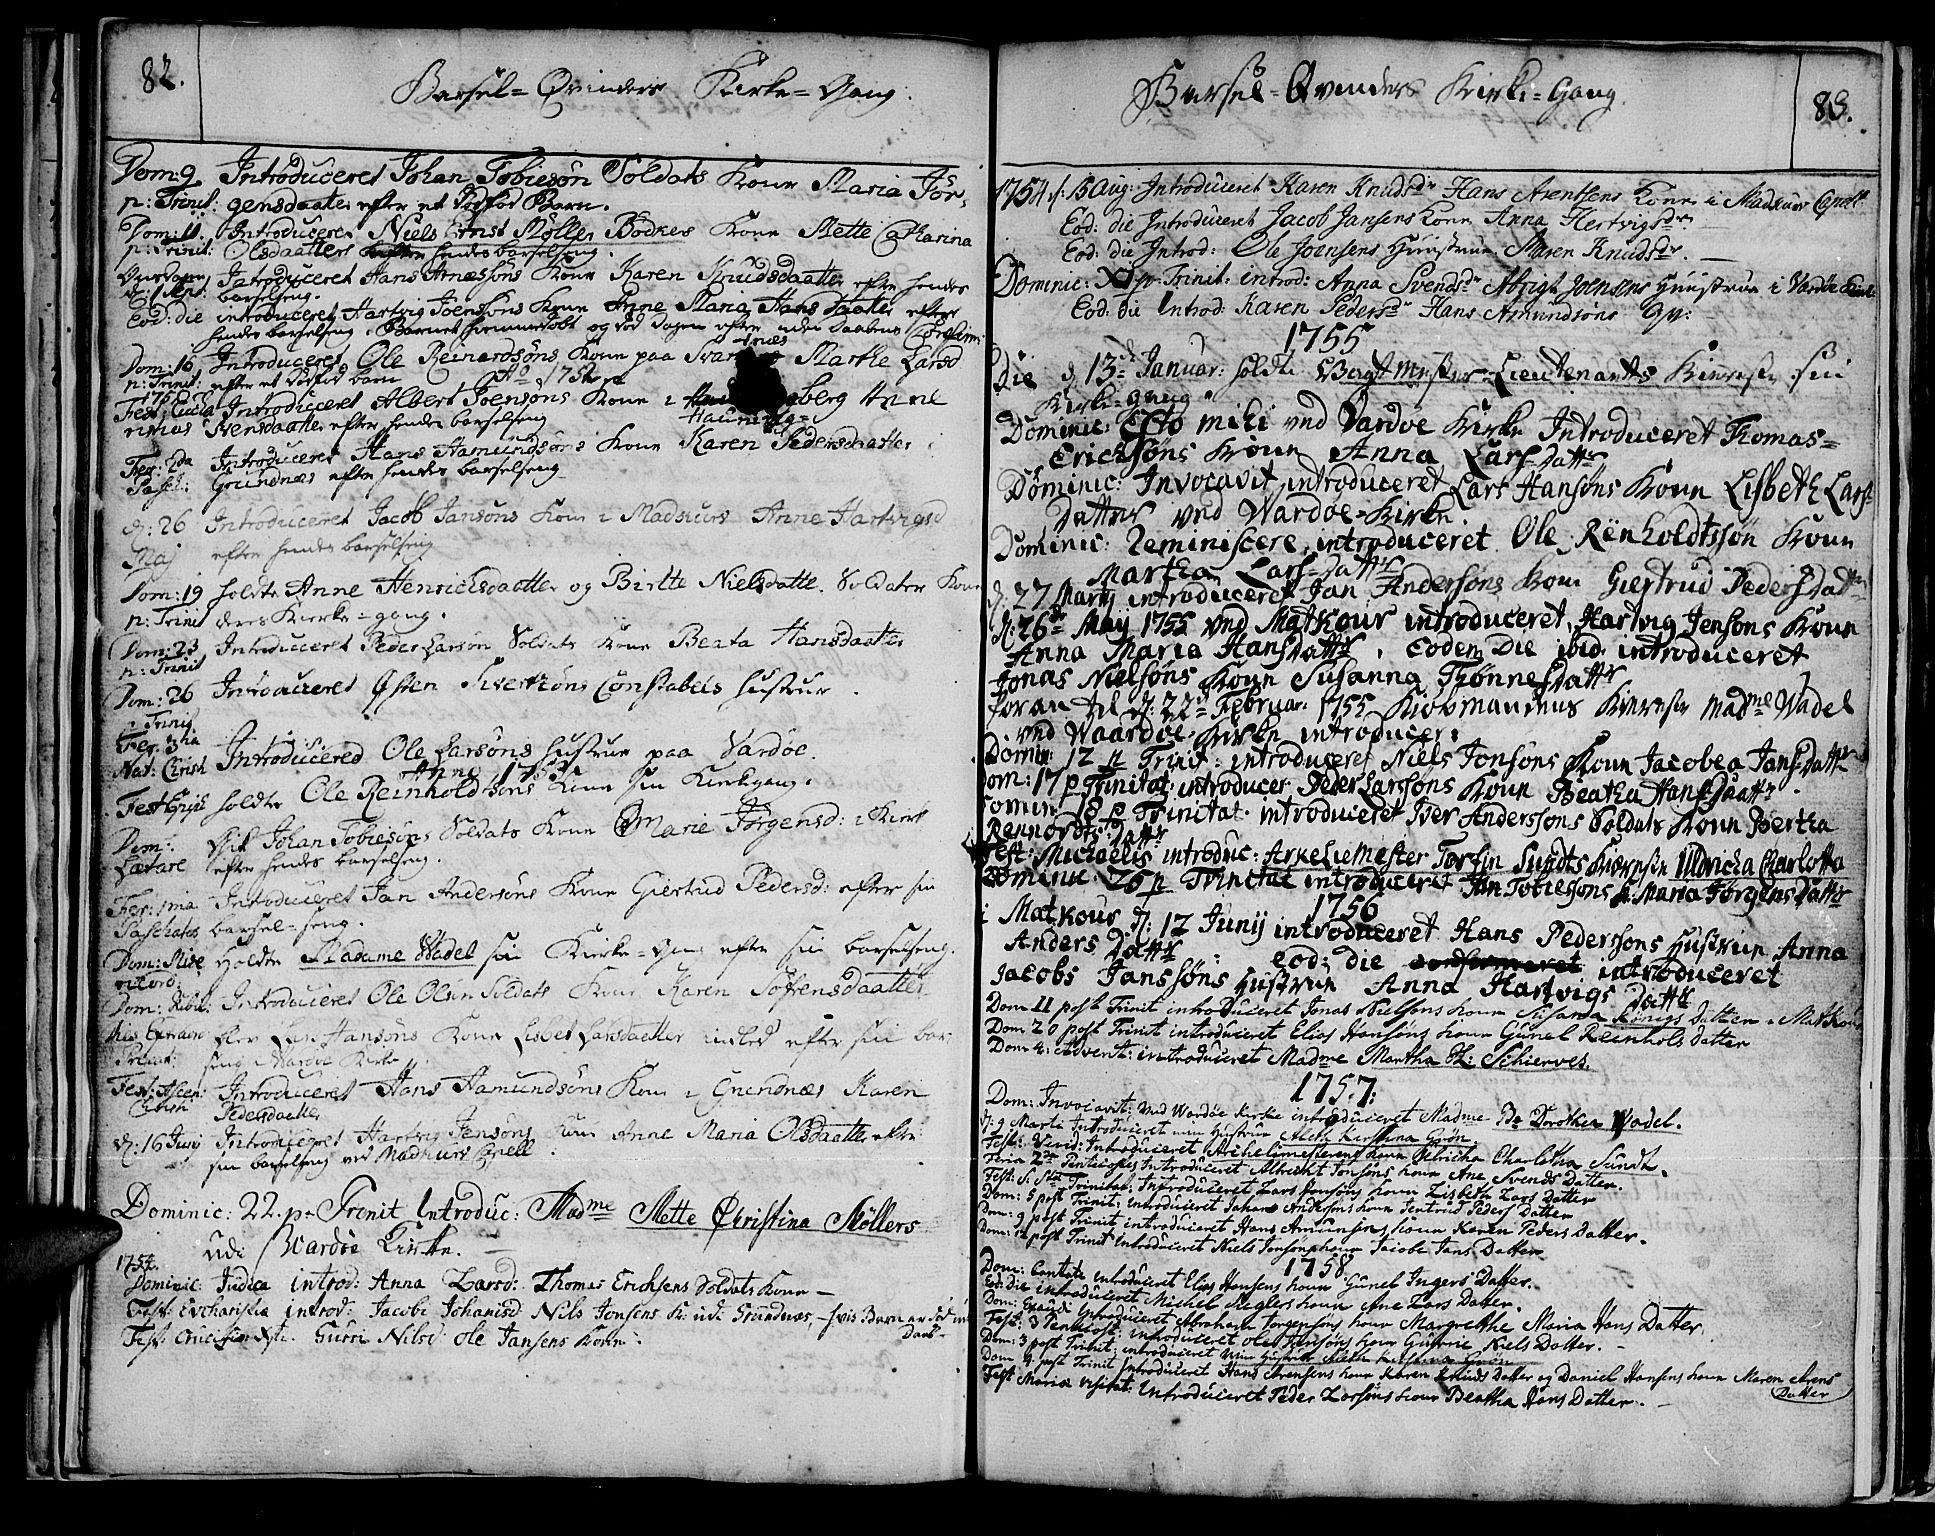 82.
Barsel-Qvinders Kirke-Gang.
Dom: 9 Introduceret Johan Tobiesøn Soldats Kone Maria Jør-
p: Trinit: gensdaatter efter et dødfød Barn.
Dom: 11. Introduceret Niels Ernst Møller Bødkers Kone Mette Catharina
p: Trinit: Olsdaatter efter hendes barselseng.
Introduceret Hans Arnessøns Kone Karen Knudsdaatter efter hendes
barselseng.
Eod: die introduceret Hartvig Joensøns Kone Anne Maria Hans daatter efter
hendes barselseng, Barnet hiemmedøbt og død dagen efter uden daabens
Dom: 16 Introduceret Ole Reinordsøns Kone paa Svartnæs Marthe Larsd
p: Trinit: efter et dødfød barn
Ao 1752
Fest: Introduceret Albert Joensøns Kone i Hauningberg Anne
Svensdaatter efter hendes barselseng
Fer: 2da Introduceret Hans Hamundsøns Kone Karen Pedersdaatter i
Pasch: Grundnæs efter hendes barselseng
d: 26 Introduceret Jacob Jansøns Kone i Madkurs Anne Hartvigsd
Maj efter hendes barselseng
Dom: 19 holdte Anne Henrichsdaatter og Birtte Nielsdatter Soldaters Koner
p: Trinit deres Kierke-gang.
Dom: 23 Introduceret Peder Larsøn Soldats Kone Beata Hansdaatter
p: Trinit
Dom: 26 Introduceret Østen Sivertsøns Constabels hustrue.
p Trinit
Fer: 3tia Introducered Ole Larsøns hustrue paa Vardøe.
Nat: Christi
Anno 175
Fest: holdte Ole Reinholdtsøns Kone sin Kirkegang.
Dom: Johan Tobiesøns Soldats Kone Marie Jørgensd: i Kirk
Lætare efter hendes barselseng.
Fer: 1ma Introduceret Jan Andersøns Kone Giertrud Pedersd: efter sin
Paschatos barsel-seng.
Dom: Mise holdte Madame Wadel sin Kirke-Gang efter sin barselseng.
ricord:
Dom: Jubil: Introduceret Ole Olsen Soldats Kone Karen Sofrensdaatter
Hansøns Kone Lisbet Larsdaatter indled efter sin bar
seng i Wardøe Kirke.
Fest: Ascen: Introduceret Hans Hamundsøns Kone i Grundnæs Karen
Christi Pedersdaatter
d: 16 Junij Introduceret Hartvig Jensøns Kone Anne Maria Olsdaatter efter
sin barselseng ved Madkurs Capell.
Dominic: 22. p. Trenit Introduc: Madme Mette Christina Møllers
udi Wardøe Kirke.
1754.
Dominic: Judica introd: Anna Larsd: Thomas Erichsens Soldats Kone
Fest: Eucharistiæ introd: Jacobe Johanisd: Nils Jonsens K: udi Grundnæs, hvis Barn er død uden
Daab
Fest: Gurri Nilsd: Ole Jansens Kone.
Barsel-Qvinders Kirke-Gang.
83.
1754 d: 15 Aug: Introduceret Karen Knudsdr Hans Arentsens Kone i Madkurs Capell
Eod: die Introduceret Jacob Jansens Kone Anna Hertvigsdr.
Eod: die Introd: Ole Joensens Hustrue Maren Knudsdr.
Dominic: XI p. Trinit: introd: Anna Svendsdr Abrigt Joensens Huustrue i Vardøe Kirke
Eod: die Introd: Karen Pedersdr Hans Amundsøns Qv:
1755
Die d. 13de Januar: holdte Vagtmester-Lieutenantts Kiereste sin
Kirke-gang.
Dominic: Esto mihi ved Vardøe Kirke Introduceret Thomas
Erichsøns Kone Anna Larsdattr
Dominic: Invocavit introduceret Lars Hansøns Kone Lisbeth Lars
datter ved Wardøe-Kirke.
Dominic: Reminiscere introduceret Ole Renholdtssøn Kone
Martha Lars-dattr
d: 27 Martij introduceret Jan Andersøns Kone Giertrud Pedersdattr
d: 26de Maij 1755 ved Matkour introduceret Hartvig Jensøns Kone
Anna Maria Hansdattr. Eodem Die ibid: introduceret
Jonas Nielsøns Kone Susanna Tønnesdattr
foran til d: 22de Februar: 1755 Kiøbmandens Kiereste Madme Wadel
ved Waardøe Kirke introducer:
Domin: 12 p Trinit: introduceret Niels Jonsøns Kone Jacobea Jansdattr
Dom: 17 p Trinitat: introducer Peder Larssøns Kone Beatha Hansdaattr.
Domin: 18 p Trinitat. introduceret Iver Anderssøns Soldats Kone Bertha
Rennordtsdattr
Fest: Michaelis introduc: Arkeliemester Torsin Sundts Kiereste Uldricka Charlotta
Dominic: 26 p Trinitat introduceret Jan Tobiessøns K: Maria Jørgensdattr
1756
i Matkour d: 12 Junij introduceret Hans Pederssøns Hustrue Anna
Andersdattr. Eod: die confirmeret introduceret
Jacobs Janssøns Hustrue Anna Hartvigs dattr
Dom 11 post Trinit introduceret Jonas Nielsøns kone Susana Königs datter i Matkour
Dom: 20 post Trinit introduceret Elias Hansøns kone Gunel Reinhols datter
Dom: 4: Advent: introduceret Madme Martha Schierves.
1757:
Dom: Invocavit: ved Wardøe Kirke introduceret Madme Dorothea Wadel.
d: 9 Martii Introduceret min Hustrue Aleth Kirstina Grøn.
Festo: Introduceret Archelimesterens kone Ulricha Charlotha Sundt.
Feria 2da Pentecostes Introduceret Albrecht Jonsøns kone Ane Svends Datter.
Fest: S. Stæ Trinitat: Introduceret Lars Hansøns kone Lisbeth Lars Datter
Dom: 5 post Trinit: introduceret Johan Andersøns kone Jertrud Peders Datter
Dom: 9 post Trinit introduceret Hans Amunsens kone Karen Peders Datter.
Dom: 12 post Trinit Introduceret Niels Jonsøns kone Jacobe Jans Datter
1758
Dom: Cantate introduceret Elias Hansens kone Gunel Ingers Datter.
Eod: Die introduceret Michel Keglers kone Ane Lars Datter.
Dom: Exaudi Introduceret Abraham Jørgensøns kone Margrethe Maria Hans Datter.
Fest: 3 Pentecost: Introduceret Ole Jansøns kone Gurrie Niels Datter.
Dom: 3 post Trinit: introduceret min Hustrue Aleth Kirstina Grøn
Dom 4 post Trinit Introduceret Hans Arensens kone Karen Knuds Datter og Daniel Hansens kone Maren Arens
Datter
Fest Mariæ visitat: Introduceret Peder Larsøns kone Beatha Hans Datter.